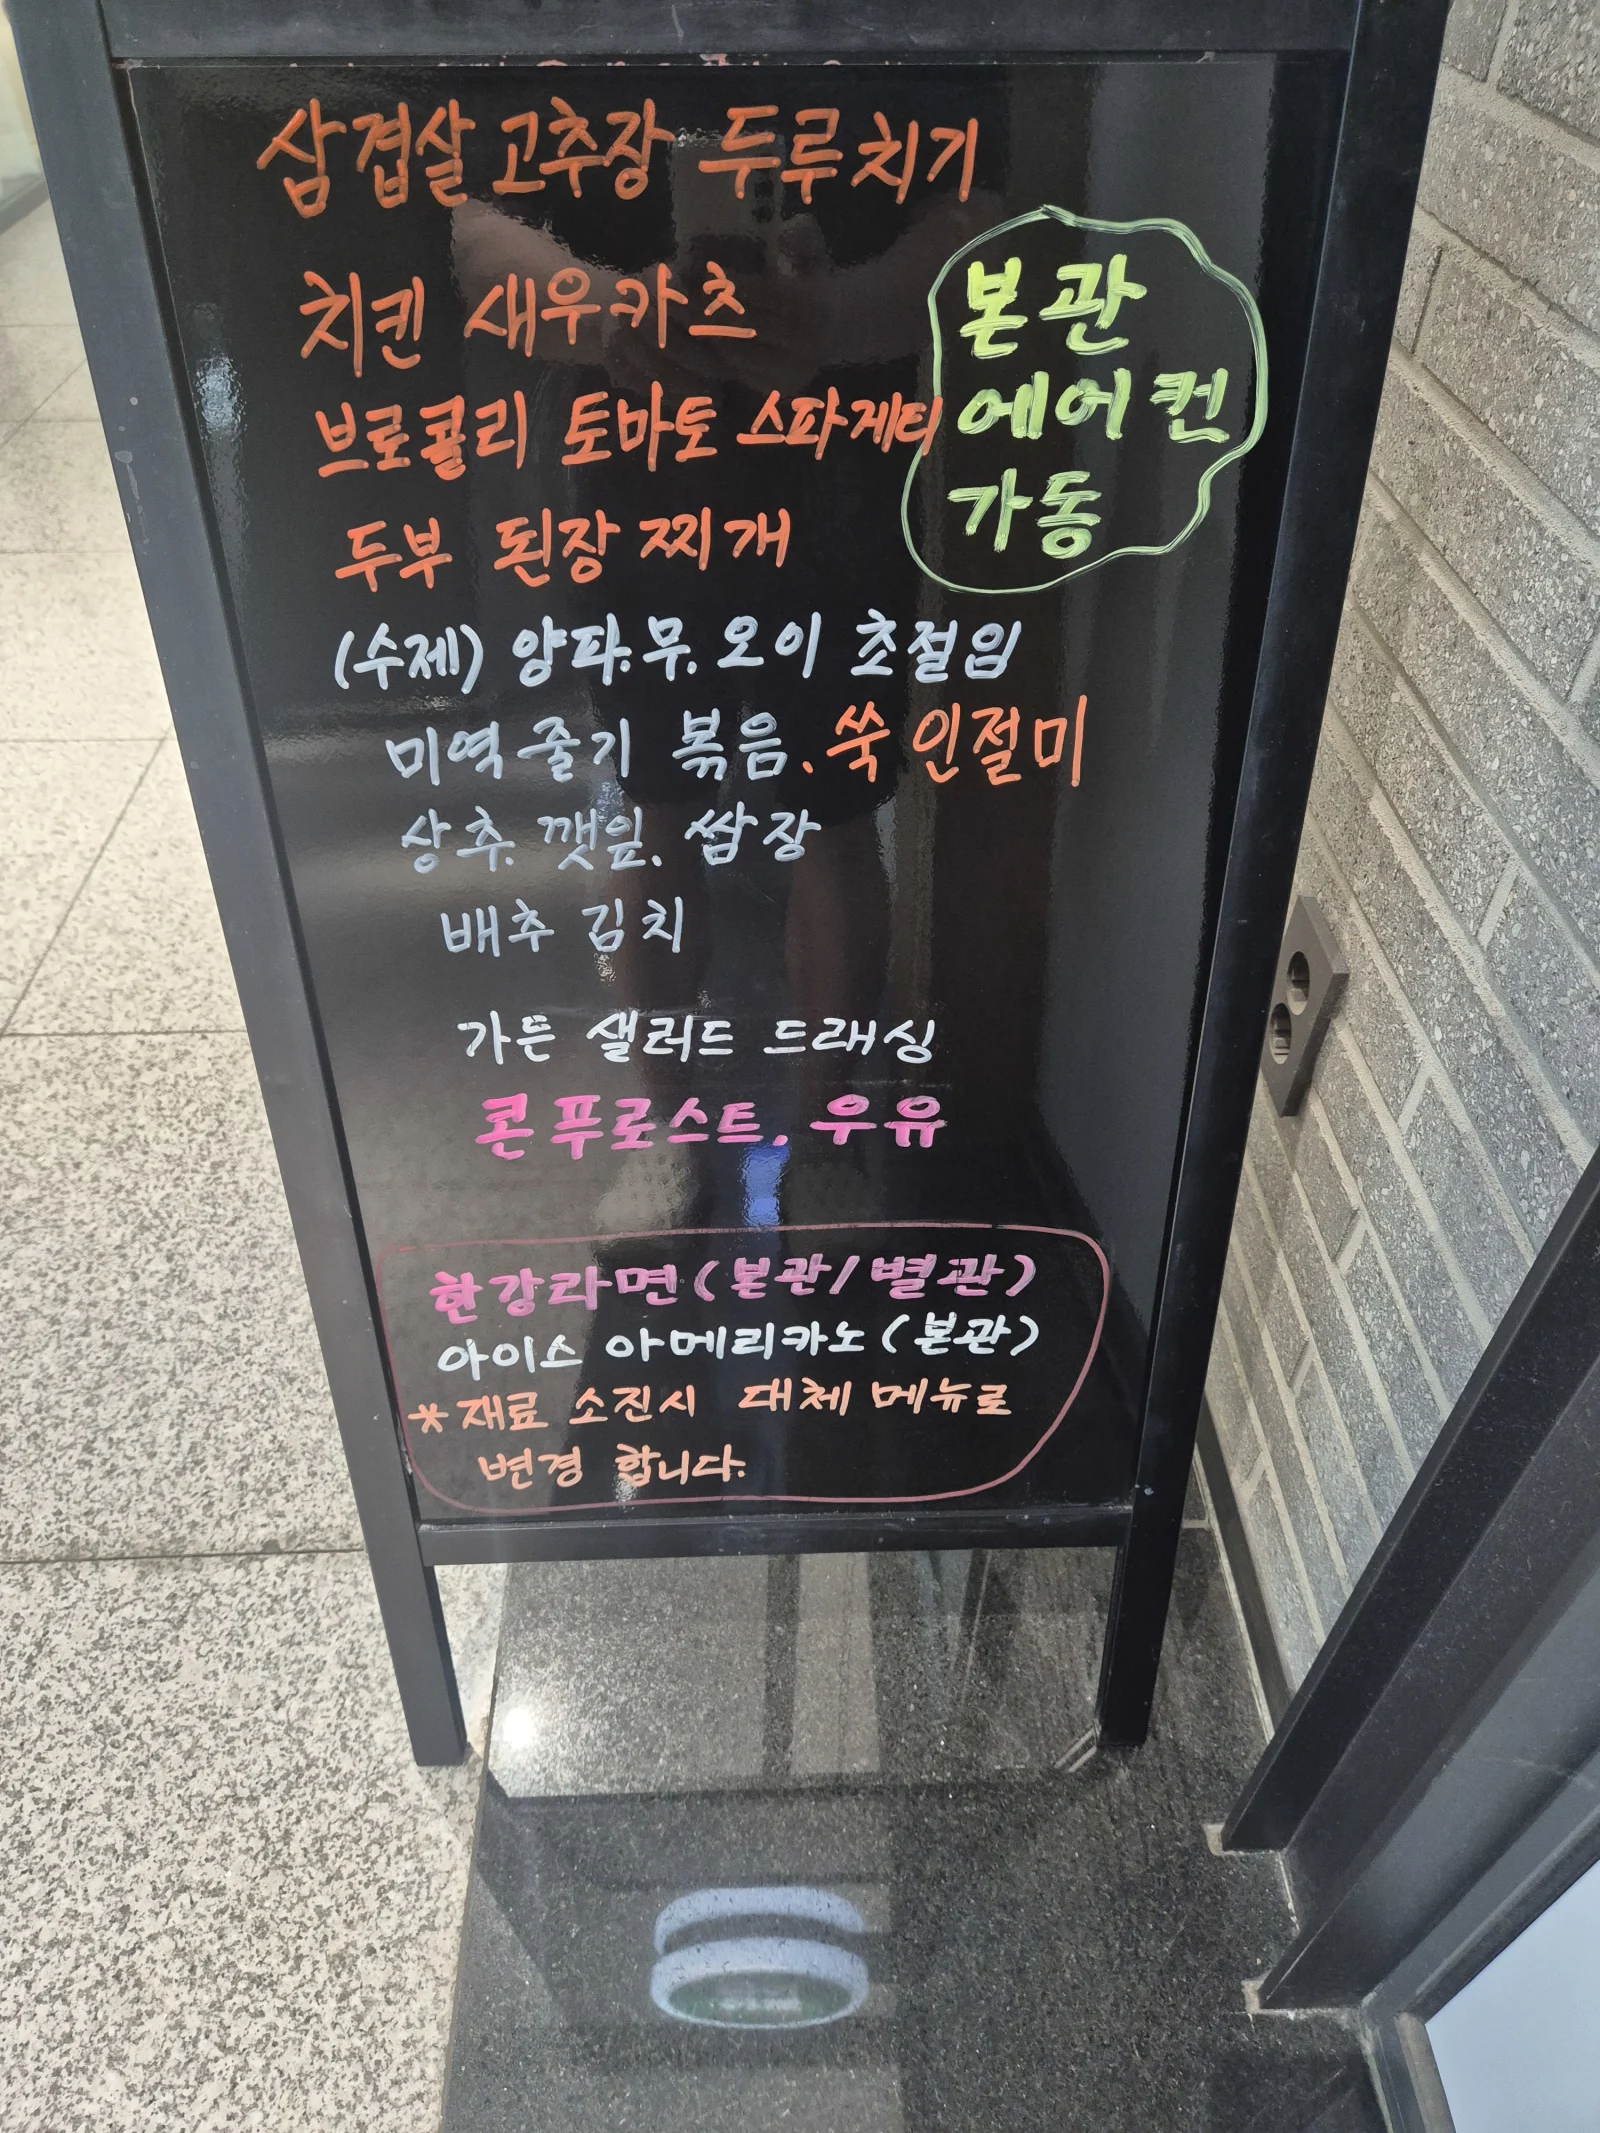 삼겹살 고추장 두루치기
치킨 새우카츠
브로콜리 토마토 스파게티
두부 된장찌개
본관
에어컨
가동
(수제) 양파.무.오이 초절임
미역줄기 볶음.쑥인절미
상추.깻잎.쌈장
배추김치
가든 샐러드 드래싱
콘푸로스트.우유
한강라면(본관/별관)
아이스 아메리카노(본관)
*재료 소진시 대체 메뉴로
변경 합니다.